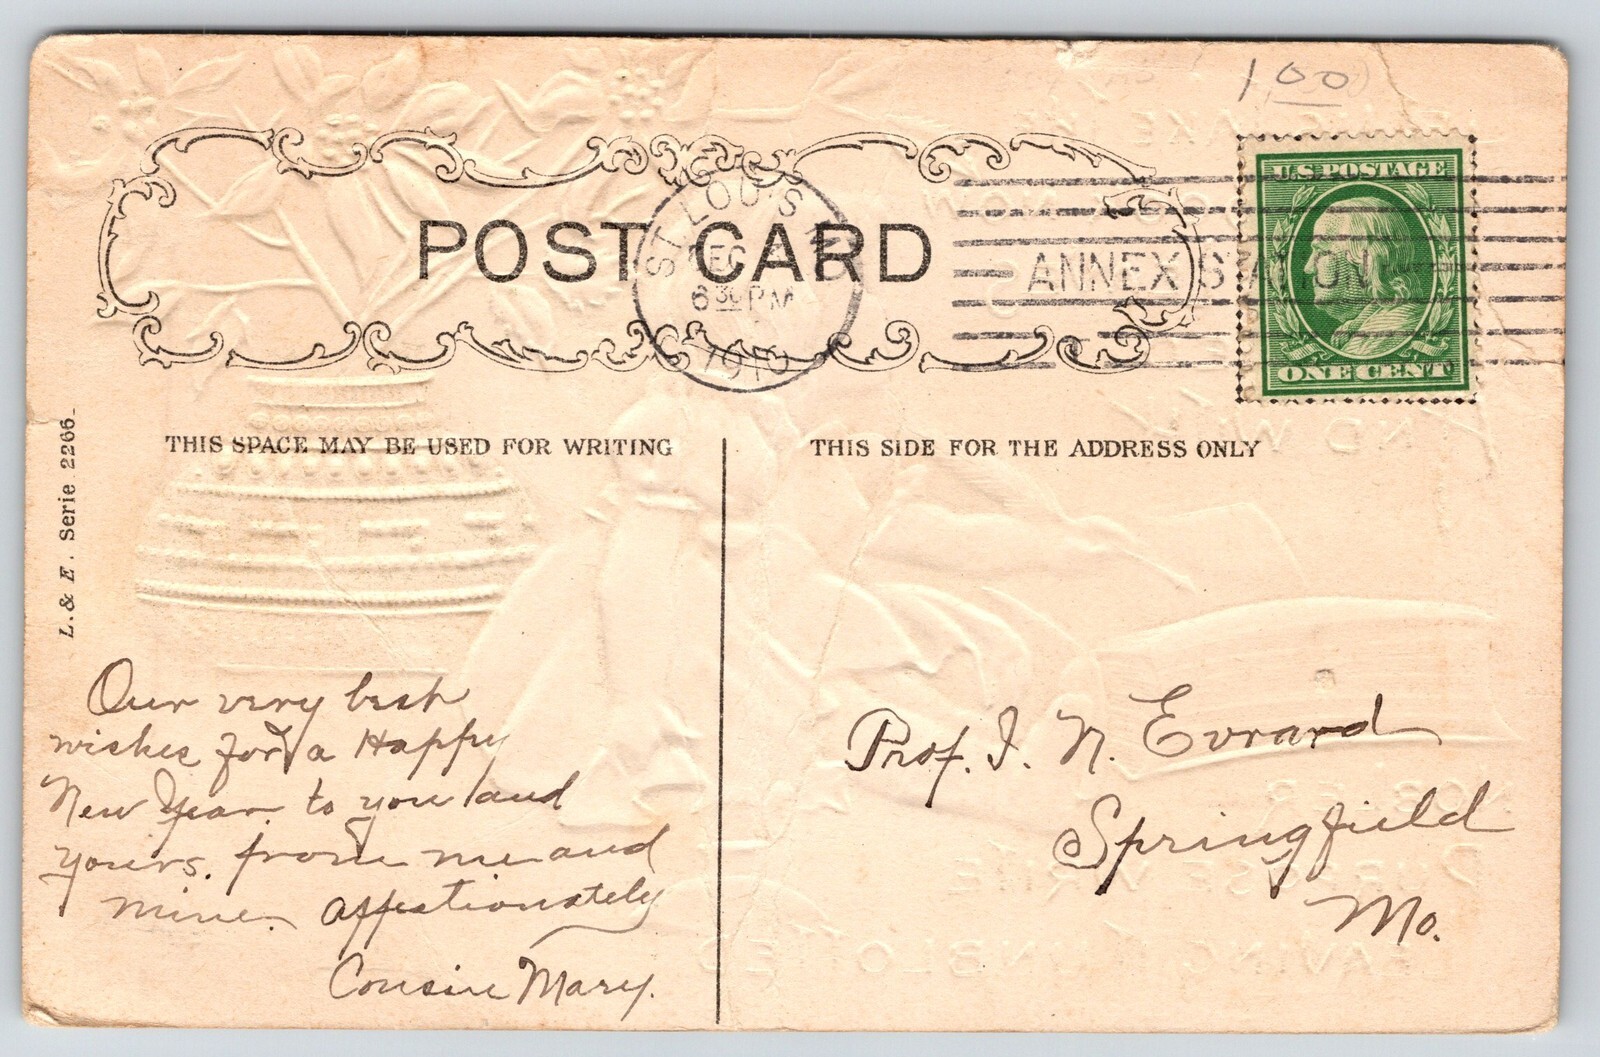 1.00
U.S. POSTAGE
ONE CENT
POST CARD
ST. LOUIS, MO.
DEC
6 30 PM
1910
ANNEX STATION
THIS SPACE MAY BE USED FOR WRITING
THIS SIDE FOR THE ADDRESS ONLY
L. & E. Serie 2266.
Our very best
wishes for a Happy
New Year to you and
yours. from me and
mine. affectionately
Cousin Mary.
Prof. I. N. Evrard
Springfield
Mo.